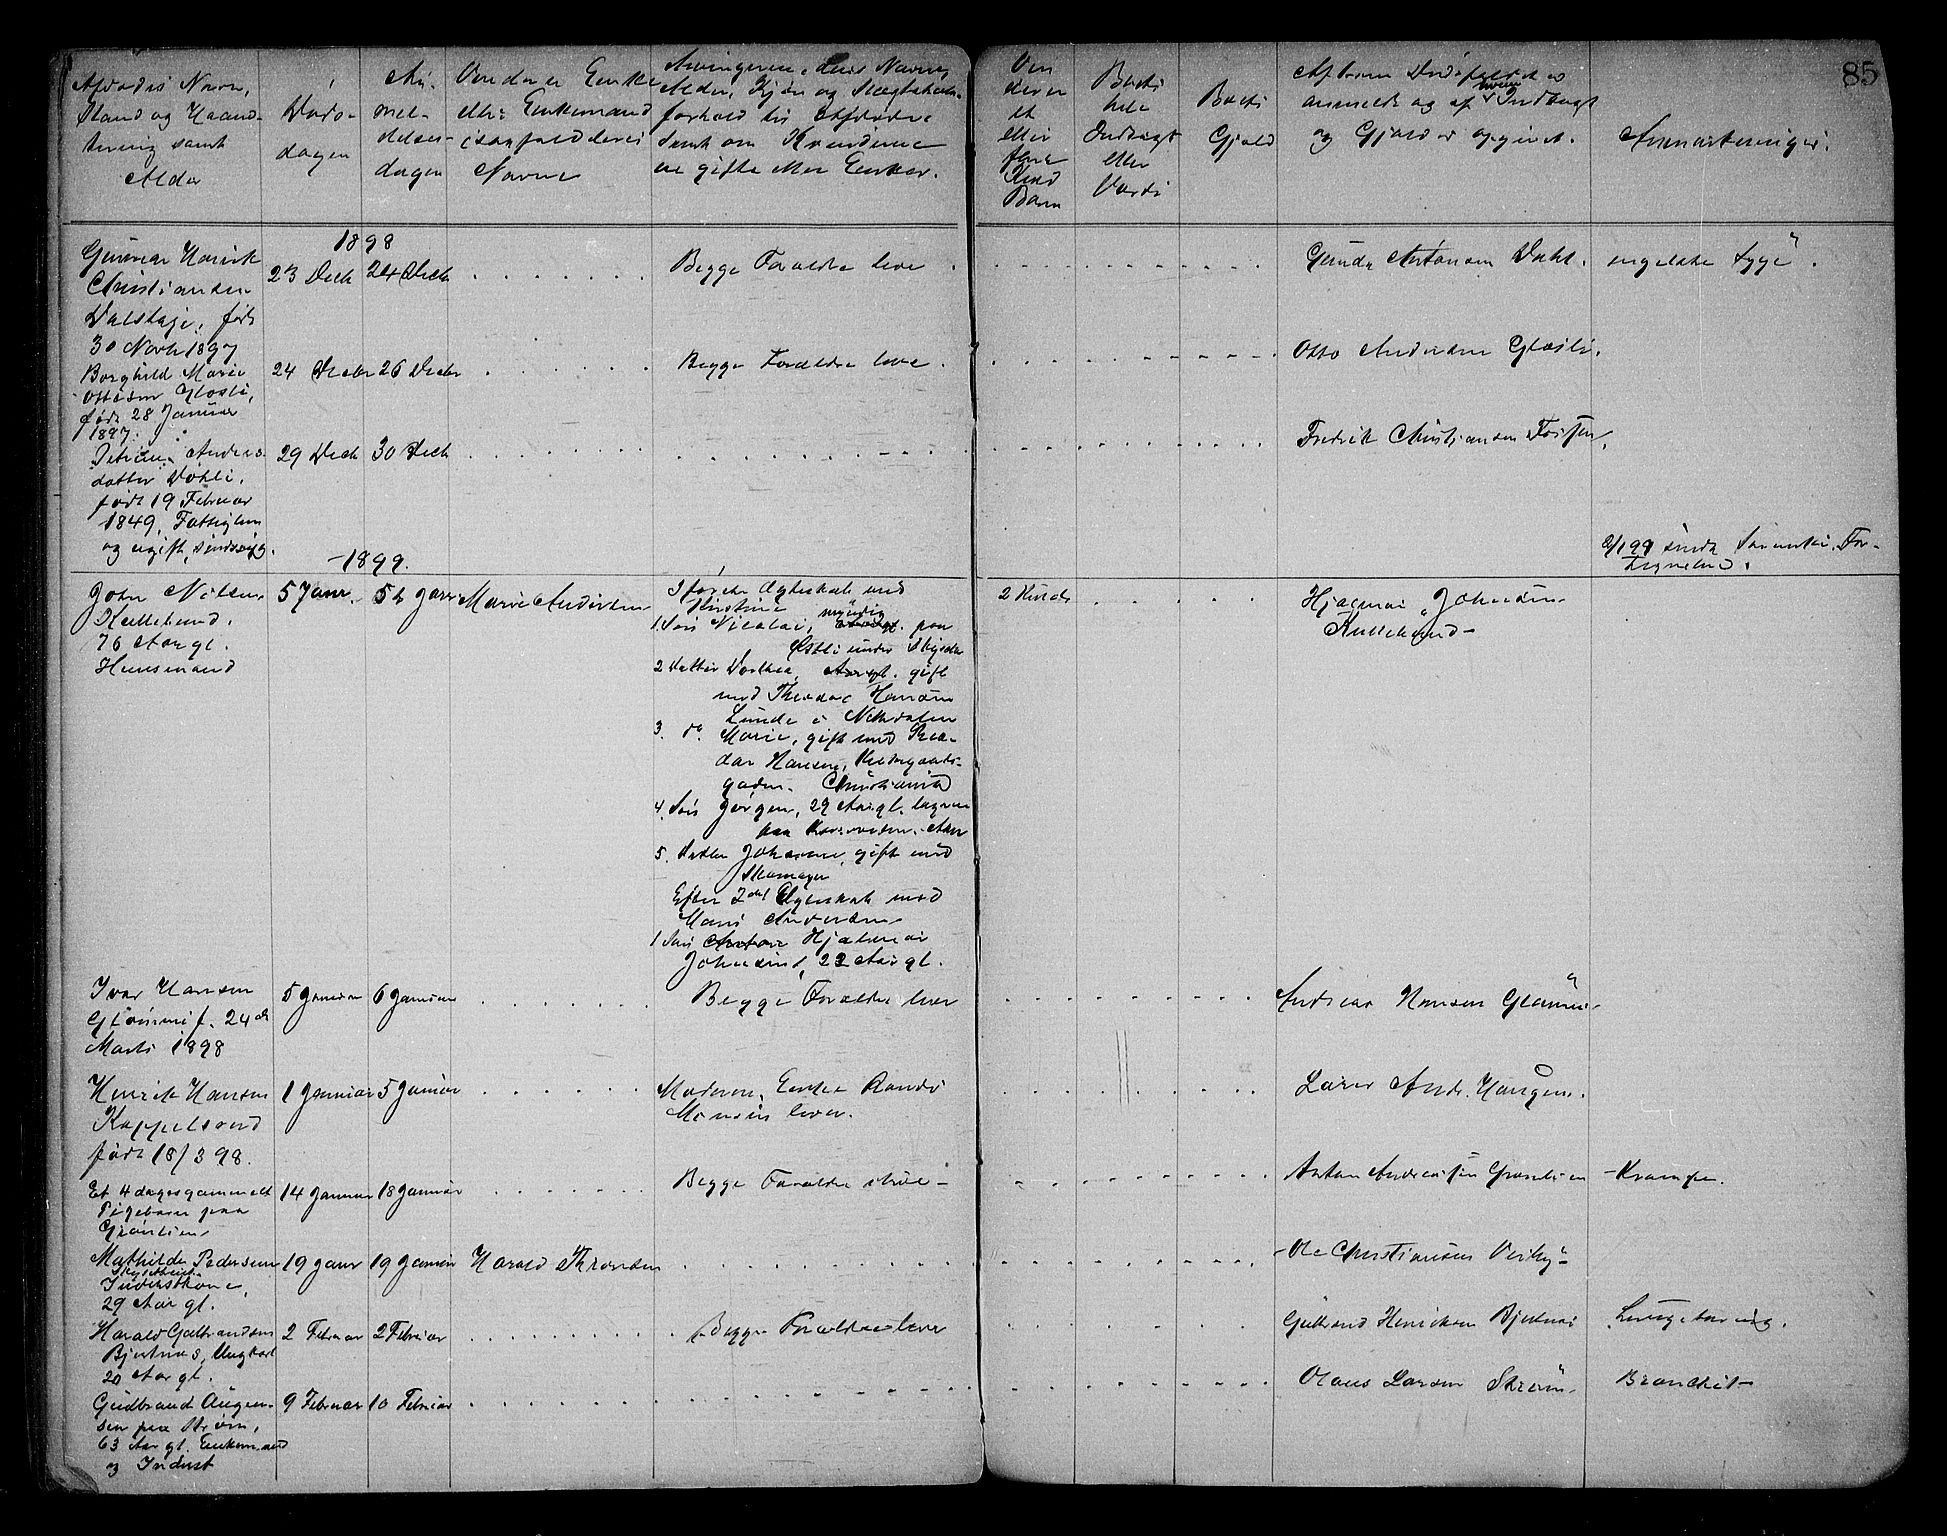 85
Afdødes Navn,
Stand og Haand-
tering samt
Alder
Døds-
dagen
An-
mel-
delses-
dagen
Den døde Enke
eller Enkemand
i saafald deres
Navne
Arvingernes Navne,
Alder, Kjøn og Slægtskabs-
forhold til Afdøde
samt om Kvinderne
ere gifte eller Enker.
Om
der er
et
eller
flere
Smaa
Børn
Boets
hele
Indtægt
eller
Værdi
Boets
Gjæld
Af hvem Dødsfaldet er
anmeldt og af hvem Indtægt
og Gjæld er opgivet.
Anmærkninger.
1898
Gunnar Henrik
Christiansen
Dalstage, født
30 Novbr 1897
23 Decb
24 Decb
Begge Forældre leve
Gunda Antonsen Dahl.
engelske Syge.
Borghild Marie
Ottosen Glosli,
født 28 Januar
1897.
24 Decbr
26 Decbr
Begge Forældre leve
Otto Andersen Glosli.
Petrine Anders-
datter Døhli,
født 19 Februar
1849, Fattiglem
og ugift, sindssyg.
29 Decb
30 Decb
Fredrik Christiansen Fossen,
1899.
2/1 99 sendt Sorenskr. For-
tegnelse.
John Nilsen
Kullebund,
76 Aar gl.
Huusmand
5 Janr.
5te Janr
Marie Andersen
I første Ægteskab med
Kirstine
1. Søn Nicolai, myndig, paa
Østli under Skysdal
2 Datter Dorthea, Aar gl. gift
med Theodor Hansen
Lunde i Nittedalen
3. do Marie, gift med Theo-
dor Hansen,
gaden. Christiania
4. Søn Jørgen, 29 Aar gl.
5. Datter Johanne, gift med
Skomager
Efter 2det Ægteskab med
Marie Andersen
1 Søn Anton Hjalmar
Johnsen, 22 Aar gl.
2 Kuld
Hjalmar Johnsen
Kullebund
Ivar Hansen
Glømmi f. 24de
Marts 1898
5 Januar
6 Januar
Begge Forældre lever
Andreas Hansen Glømmi
Henrik Hansen
Koppelsrud
født 18/3 98.
1 Januar
5 Januar
Moderen, Enke Randi
Monsen lever.
Lars Andr. Haugen.
Et 4 dages gammelt
Pigebarn paa
Grønlien
14 Januar
18 Januar
Begge Forældre i live
Anton Andreassen Grønlien
Krampe.
Mathilde Pedersen
Inderstkone,
29 Aar gl.
19 Janr
19 Januar
Harald Thronsen
Ole Christiansen Visby
Harald Gulbrandsen
Bjertnæs, Ungkarl
20 Aar gl.
2 Februar
2 Februar
Begge Forældre lever
Gulbrand Henriksen Bjertnæs
Lungetæring.
Gudbrand Augen-
sen paa Strøm,
63 Aar gl. Enkemand
og Inderst
9 Februar
10 Februar
Olaus Larsen Strøm
Bronchit